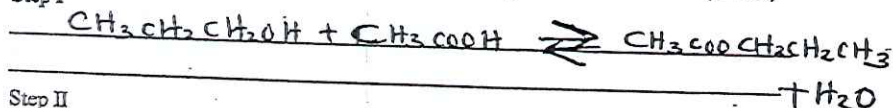 CH3CH2CH2OH + CH3COOH ⇌ CH3COOCH2CH2CH3
+ H2O
Step II